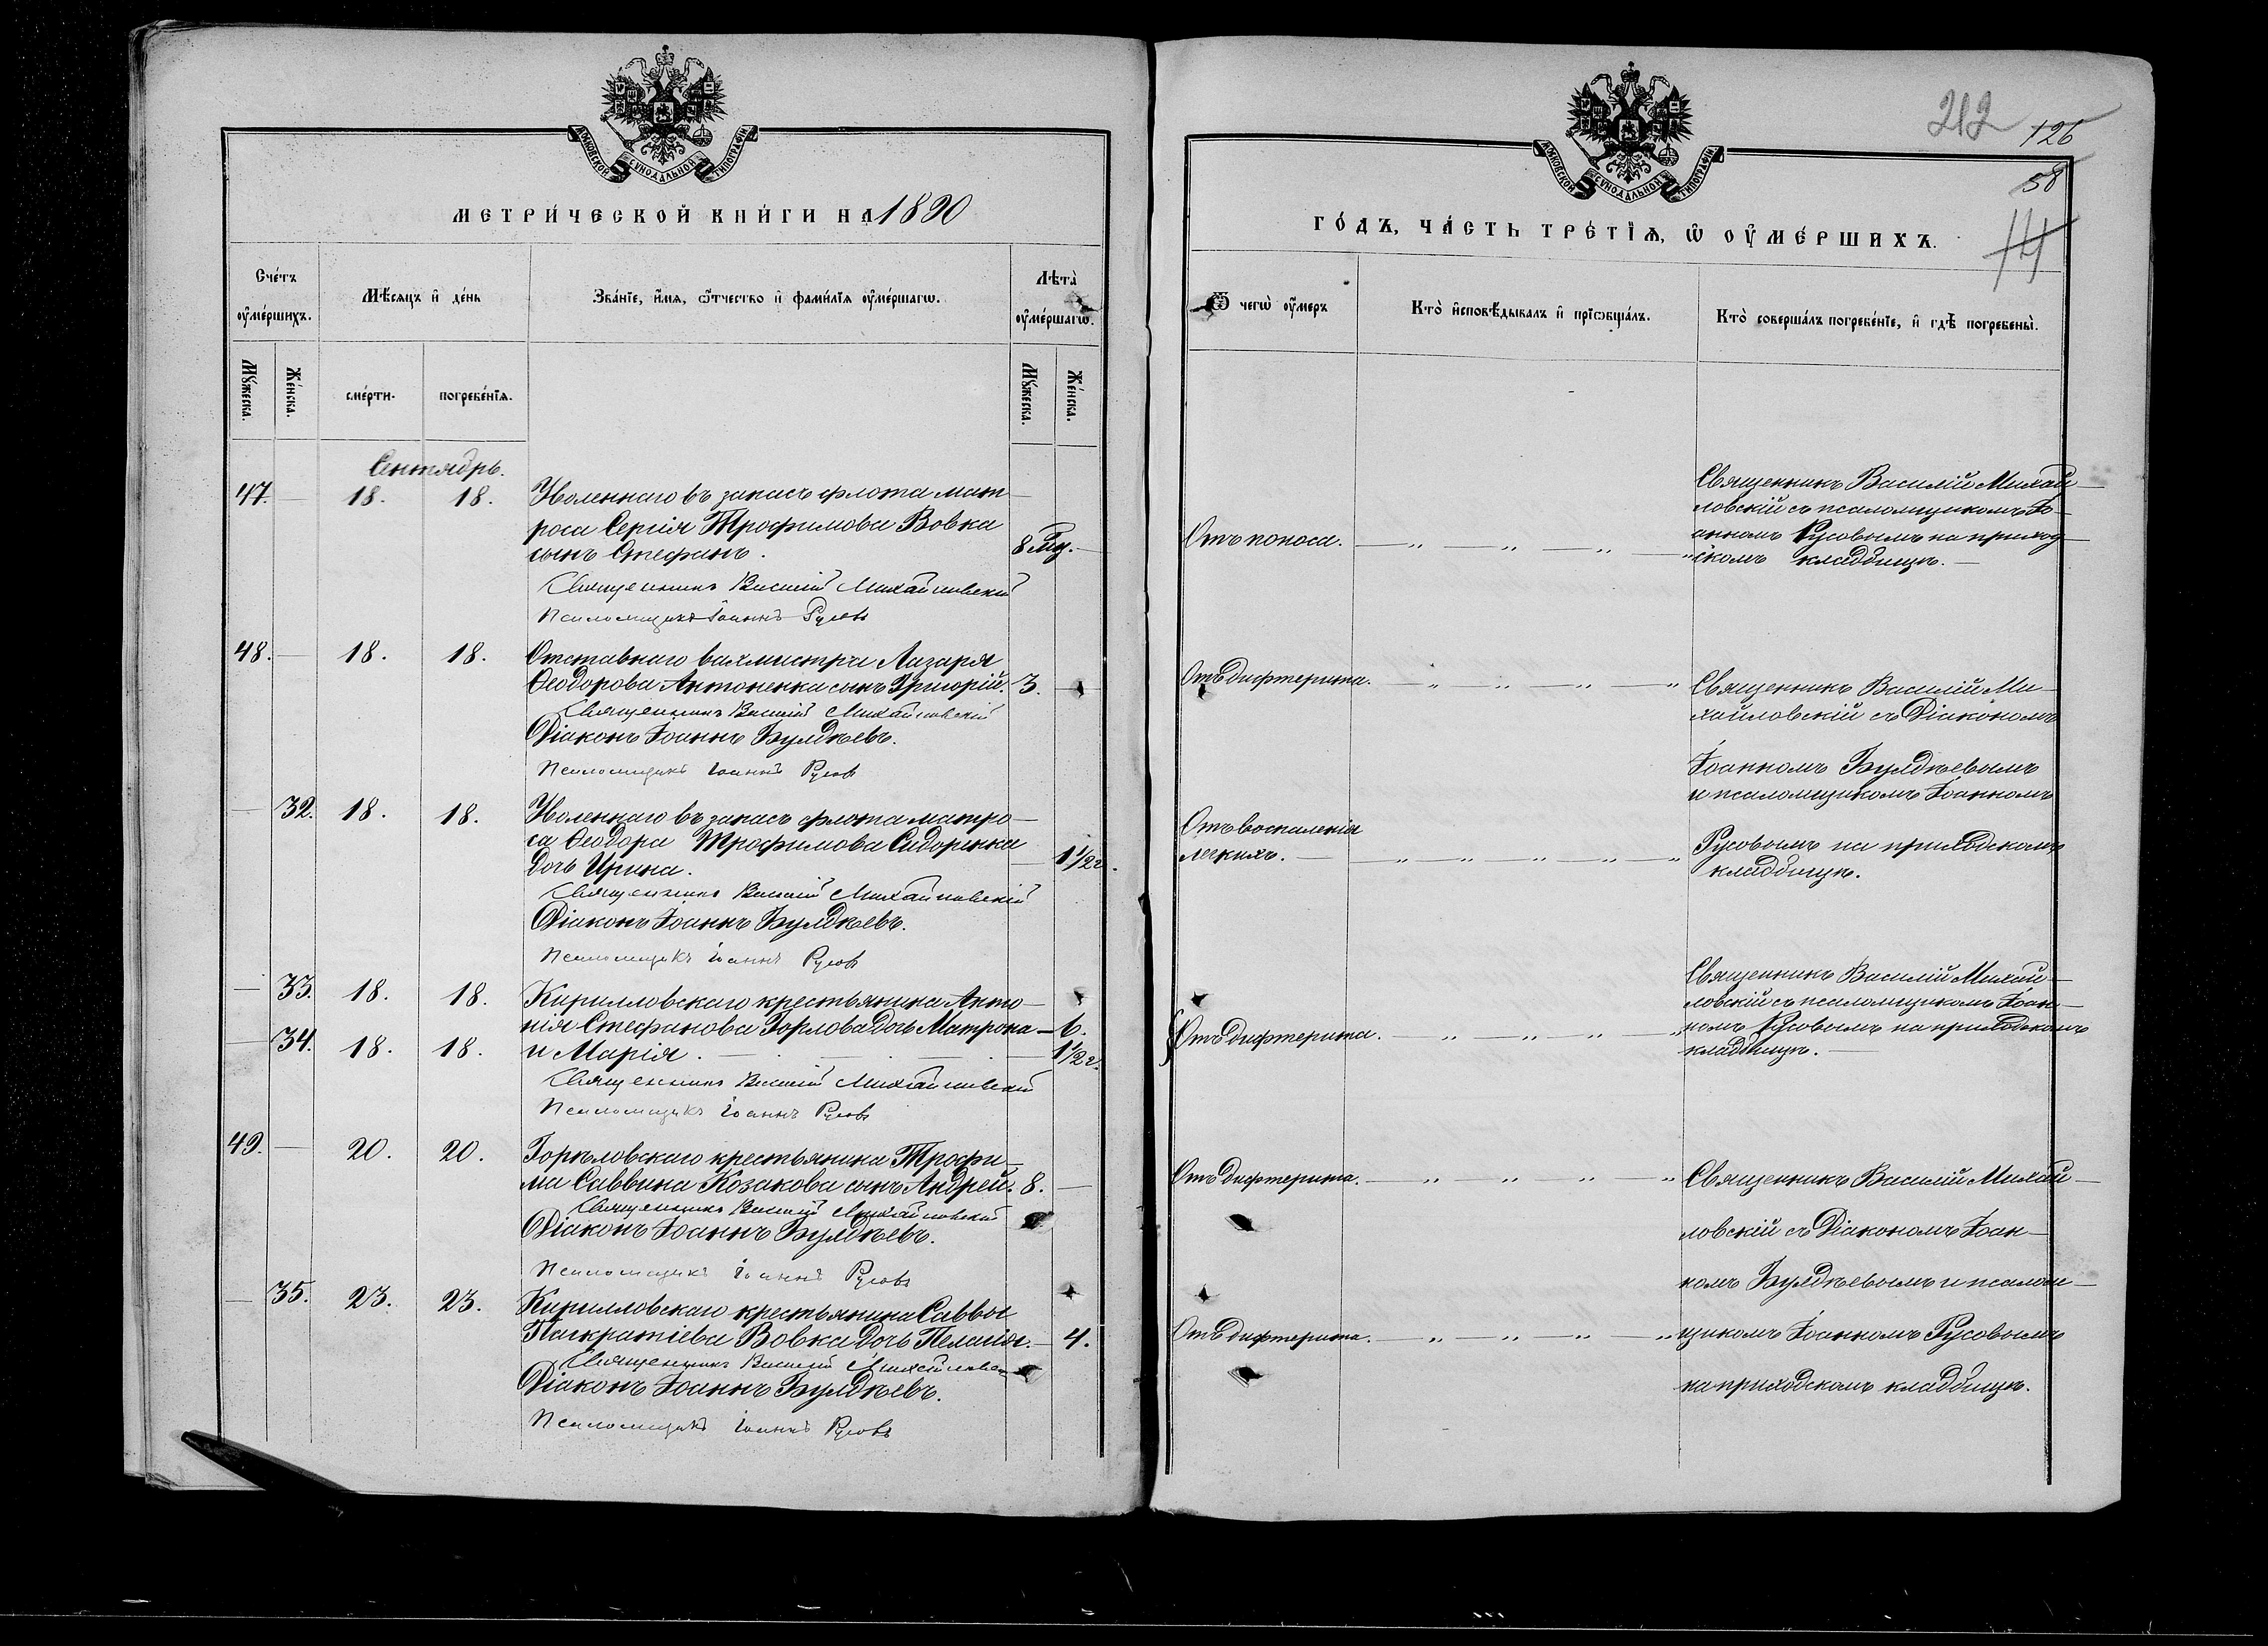 МОСКОВСКОЙ СѴНОДАЛЬНОЙ ТИПОГРАФІИ
МЕТРИ́ЧЕСКОЙ КНИ́ГИ НА 1890
Сче́тъ ѹ҆ме́ршихъ.
Мѣ́сяцъ и҆ де́нь
Зва́нїе, и҆́мѧ, ѻ҆́тчество и҆ фами́лїѧ ѹ҆ме́ршагѡ.
Лѣта̀ ѹ҆ме́ршагѡ.
Мꙋ́жеска.
Же́нска.
сме́рти.
погребе́нїѧ.
Мꙋ́жеска.
Же́нска.
Сентябрь.
47. — 18. 18. Уволеннаго въ запасъ флота мат
роса Сергія Трофимова Вовка
сынъ Стефанъ. 8 мц. —
Священникъ Василій Михайловскій
Псаломщикъ Іоаннъ Русовъ
48. — 18. 18. Отставнаго вахмистра Лазаря
Ѳеодорова Антоненка сынъ Григорій. 3. —
Священникъ Василій Михайловскій
Діаконъ Іоаннъ Булдѣевъ.
Псаломщикъ Іоаннъ Русовъ
— 32. 18. 18. Уволеннаго въ запасъ флота матро—
са Ѳеодора Трофимова Сидоренка
дочь Ирина. — 1 1/2 г.
Священникъ Василій Михайловскій
Діаконъ Іоаннъ Булдѣевъ.
Псаломщикъ Іоаннъ Русовъ
— 33. 18. 18. Кирилловскаго крестьянина Анто—
нія Стефанова Горлова дочь Матрона — 6.
— 34. 18. 18. и Марія. — 1 1/2 г.
Священникъ Василій Михайловскій
Псаломщикъ Іоаннъ Русовъ
49. — 20. 20. Горѣловскаго крестьянина Трофи—
ма Саввина Козакова сынъ Андрей. 8. —
Священникъ Василій Михайловскій
Діаконъ Іоаннъ Булдѣевъ.
Псаломщикъ Іоаннъ Русовъ
— 35. 23. 23. Кирилловскаго крестьянина Саввы
Панкратіева Вовка дочь Пелагія. — 4.
Священникъ Василій Михайловс
Діаконъ Іоаннъ Булдѣевъ.
Псаломщикъ Іоаннъ Русовъ
212
126
58
МОСКОВСКОЙ СѴНОДАЛЬНОЙ ТИПОГРАФІИ
ГО́ДЪ, ЧА́СТЬ ТРЕ́ТЇѦ, Ѡ҆ ОУ҆МЕ́РШИХЪ.
Ѿ чегѡ̀ ѹ҆́меръ
Кто̀ и҆сповѣ́дывалъ и҆ прїѡбща́лъ.
Кто̀ соверша́лъ погребе́нїе, и҆ гдѣ̀ погребены̀.
Священникъ Василій Михай—
ловскій съ псаломщикомъ Іо—
Отъ поноса. анномъ Русовымъ на приход—
скомъ кладбищѣ. —
Отъ дифтерита. Священникъ Василій Ми—
хайловскій съ Діакономъ
Іоанномъ Булдѣевымъ
и псаломщикомъ Іоанномъ
Отъ воспаленія
легкихъ. Русовымъ на приходскомъ
кладбищѣ.
Священникъ Василій Михай—
ловскій съ псаломщикомъ Іоан—
Отъ дифтерита. номъ Русовымъ на приходскомъ
кладбищѣ. —
Отъ дифтерита. Священникъ Василій Михай—
ловскій съ Діакономъ Іоан—
номъ Булдѣевымъ и псалом—
Отъ дифтерита. щикомъ Іоанномъ Русовымъ
на приходскомъ кладбищѣ.